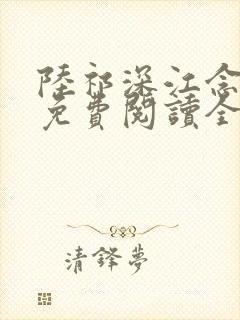 陸祁深江念
免費閱讀全
清鋒夢